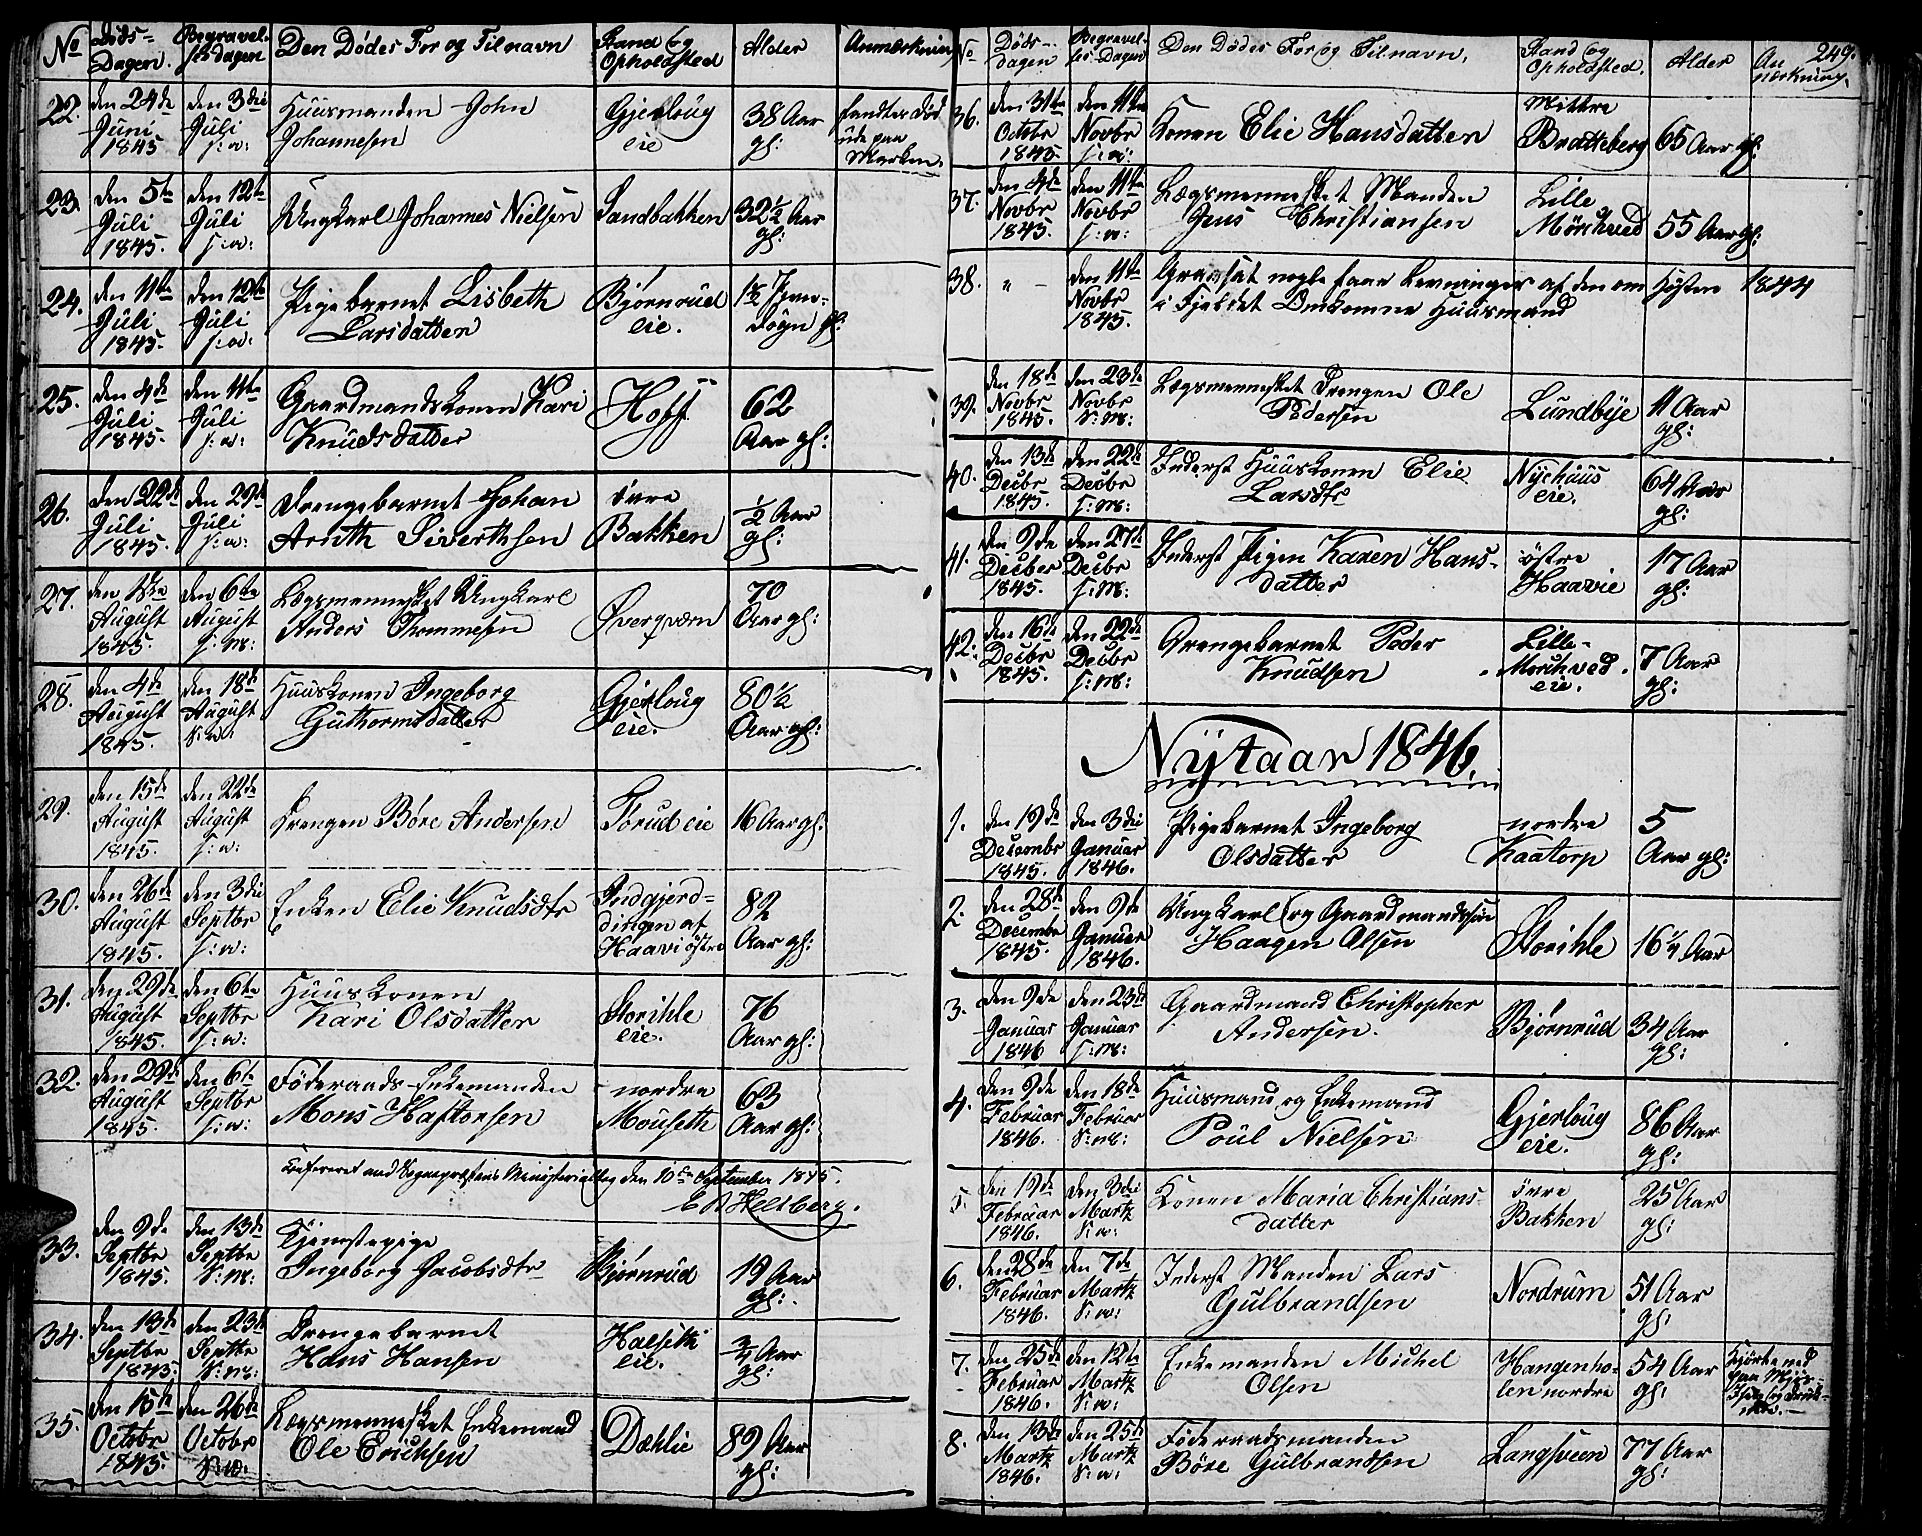 No Døds- Begravel- Den Dødes For og Tilnavn Stand og Alder Anmærkning
Dagen. sesdagen Opholdsted
22. den 24de den 3die Huusmanden John Gjerloug 38 Aar fandtes død
Juni Juli Johannesen eie gl: ude paa
1845 s:a: Marken.
23. den 5te den 12te Ungkarl Johannes Nielsen Sandbakken 32½ Aar
Juli Juli gl:
1845. s:a:
24. den 11te den 12te Pigebarnet Lisbeth Bjørnrud
Juli Juli Larsdatter eie. Døgn gl:
1845. s:a:
25. den 4de den 11te Gaardmandskonen Kari Hoff 62
Juli Juli Knudsdatter Aar gl:
1845. s:a:
26. den 22de den 29de Drengebarnet Johan øvre ½ Aar
Juli Juli Arnth Siverthsen Bakken gl:
1845. s:a:
27. den 1ste den 6te Lægsmennesket Ungkarl Øvergværn 70
August August Anders Thommesen Aar gl:
1845. s:m:
28. den 4de den 18de Huuskonen Ingeborg Gjerloug 80½
August August Guthormsdatter eie. Aar gl:
1845. s:a:
29. den 15de den 22de Drengen Børe Andersen Torud eie 16 Aar gl:
August August
1845. s:a:
30. den 26de den 3die Enken Elie Knudsdtr Indgjerd- 82
August Septbr dingen af Aar gl:
1845. s:a: Haavi østre
31. den 29de den 6te Huuskonen Storihle 76
August Septbr Kari Olsdatter eie. Aar gl:
1845. s:a:
32. den 29de den 6te Føderaads-Enkemanden nordre 63
August Septbr Mons Haftorsen Mouseth Aar gl:
1845. s:a:
Confereret med Sognepræstens Ministerialbog den 10de September 1845.
Heltberg.
33. den 9de den 13de Tjenestepige Bjørnrud 19 Aar
Septbr Septbr Ingeborg Jacobsdtr gl:
1845. s:m:
34. den 13de den 23de Drengebarnet Halseth ¾ Aar
Septbr Septbr Hans Hansen eie. gl:
1845. s:m:
35. den 15de den 26de Lægsmennesket Enkemand Dæhlie 89 Aar
Octobr Octobr Ole Erichsen gl:
1845. s:a:
249.
No Døds- Begravel- Den Dødes For og Tilnavn. Stand og Alder An
dagen ses-Dagen Opholdsted. mærkning.
36. den 31te den 11te Konen Elie Hansdatter Mittre 65 Aar gl:
Octobr Novbr Bratteberg
1845. s:a:
37. den 4de den 11te Lægsmennesket Manden Lille 55 Aar gl:
Novbr Novbr Jens Christiansen Mørchved
1845. s:a:
38. " - den 11te Gravsat nogle faae Levninger af den om Høsten 1844
Novbr i Fjeldet Omkomne Huusmand
1845.
39. den 18de den 23de Lægsmennesket Drengen Ole Lundbye 11 Aar
Novbr Novbr Pedersen gl:
1845. s:m:
40. den 13de den 22de Inderst Huuskonen Elie Nyehuus 64 Aar
Decbr Decbr Larsdtr eie. gl:
1845. s:m:
41. den 9de den 27de Inderst Pigen Karen Hans- østre 17 Aar
Decber Decbr datter Haavie gl:
1845. s:m:
42. den 16de den 22de Drengebarnet Peder Lille- 7 Aar
Decbr Decbr Knudsen Morchved gl:
1845. s:m: eie.
Nytaar 1846.
1. den 19de den 3die Pigebarnet Ingeborg nordre 5
Decembr Januar Olsdatter Kaatorp Aar gl:
1845. 1846.
2. den 28de den 9de Ungkarl og Gaardmandssøn Storihle 16½ Aar
Decembr Januer Haagen Olsen
1845. 1846.
3. den 9de den 23de Gaardmand Christopher Bjørnrud 34 Aar
Januar Januar Andersen. gl:
1846 s:m:
4. den 9de den 18de Huusmand og Enkemand Gjerloug 86 Aar
Februar Februar Poul Nielsen eie. gl:
1846. s:m:
5. den 19de den 3die Konen Maria Christians- øvre 25 Aar
Februar Martz datter Bakken gl:
1846. s:a:
6. den 28de den 7de Inderst Manden Lars Nordrum 51 Aar
Februar Martz Gulbrandsen gl:
1846. s:a:
7. den 25de den 12te Enkemanden Michel Hangenho- 54 Aar Kjørte ned
Februar Martz Olsen len nordre gl: paa Mjøs-
1846. s:a:
8. den 13de den 25de Føderaadsmanden Langsveen 77 Aar
Martz Martz Børe Gulbrandsen gl:
1846. s:a: